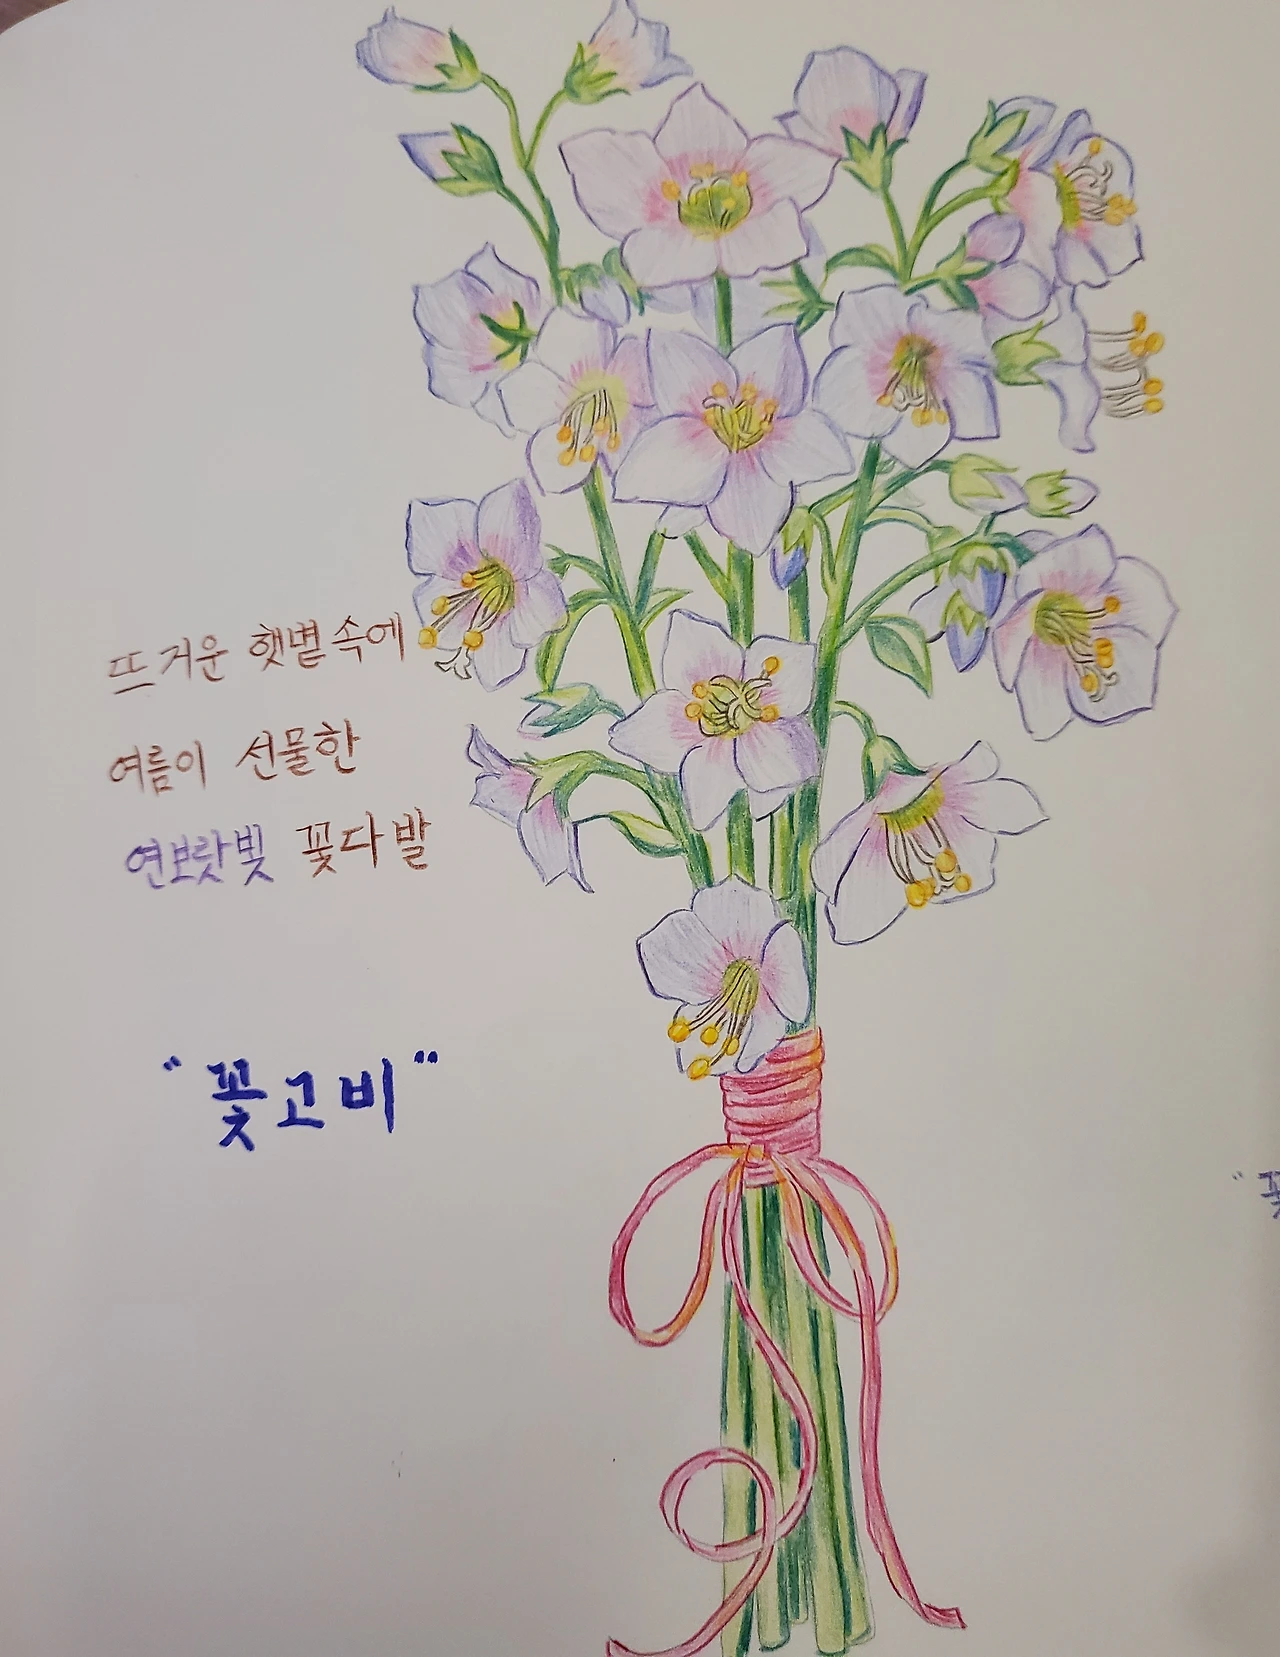 뜨거운 햇볕 속에
여름이 선물한
연보랏빛 꽃다발
"꽃고비"
"꽃